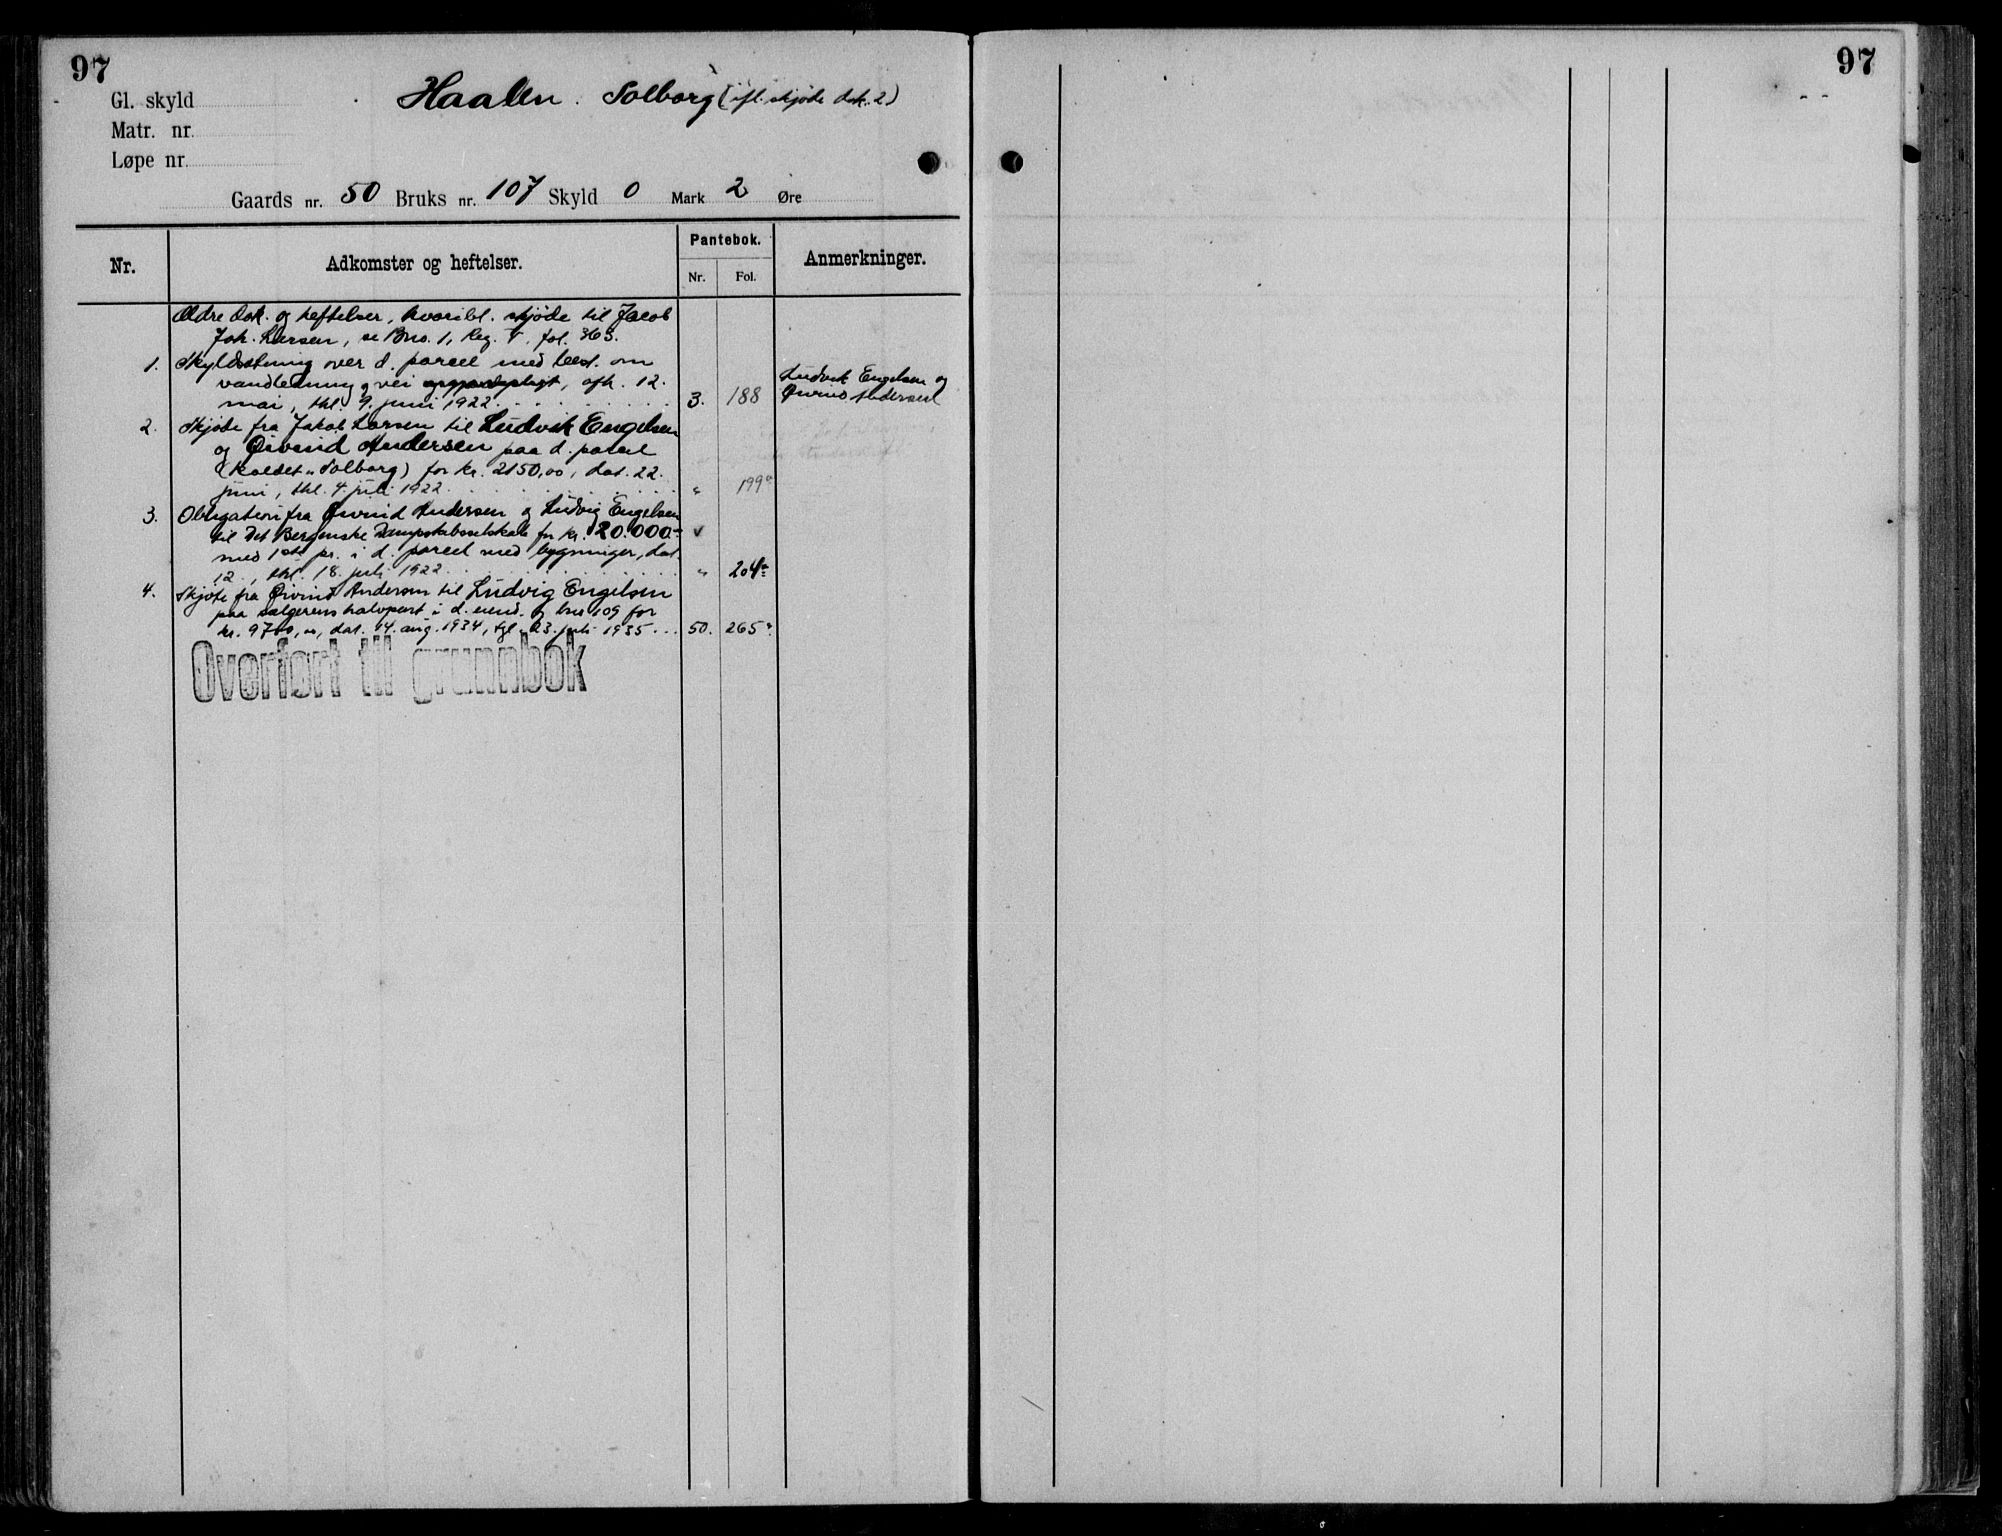 97
Gl. skyld
Haalen. Solborg (ifl. skjøde dok. 2)
Matr. nr.
Løpe nr.
Gaards nr. 50 Bruks nr. 107 Skyld 0 Mark 2 Øre
Nr.
Adkomster og heftelser.
Pantebok.
Nr. Fol.
Anmerkninger.
Ældre dok. og heftelser, hvoribl. skjøde til Jacob
Joh. Larsen, se Bno. 1, Reg. fol. 363.
1. Skyldsetning over d. parcel med best. om
vandledning og vei afh. 12.
mai, thl. 9. juni 1922 3. 188
Ludvik Engelsen og
Øivind Andersen
2. Skjøde fra Jakob Larsen til Ludvik Engelsen
og Øivind Andersen paa d. parcel
(kaldet "Solborg) for kr. 2150,00, dat. 22.
juni, thl. 4. juli 1922 " 199a
3. Obligation fra Øivind Andersen og Ludvig Engelsen
til Det Bergenske Dampskibsselskab for kr. 20.000.-
med 1ste pr. i d. parcel med bygninger, dat.
12., thl. 18. juli 1922 " 204a
4. Skjøte fra Øivind Andersen til Ludvig Engelsen
paa sælgerens halvpart i d. eiend. og bnr 109 for
kr. 9700,00, dat. 14. aug. 1934, tgl. 23. juli 1935 ... 50. 265
Overført til grunnbok
97